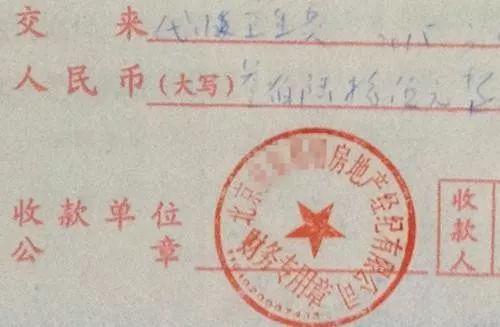 交来 代收卫生费
人民币(大写) 叁佰陆拾伍元整
北京 房地产经纪有限公司
财务专用章
收款单位
公章
收款人